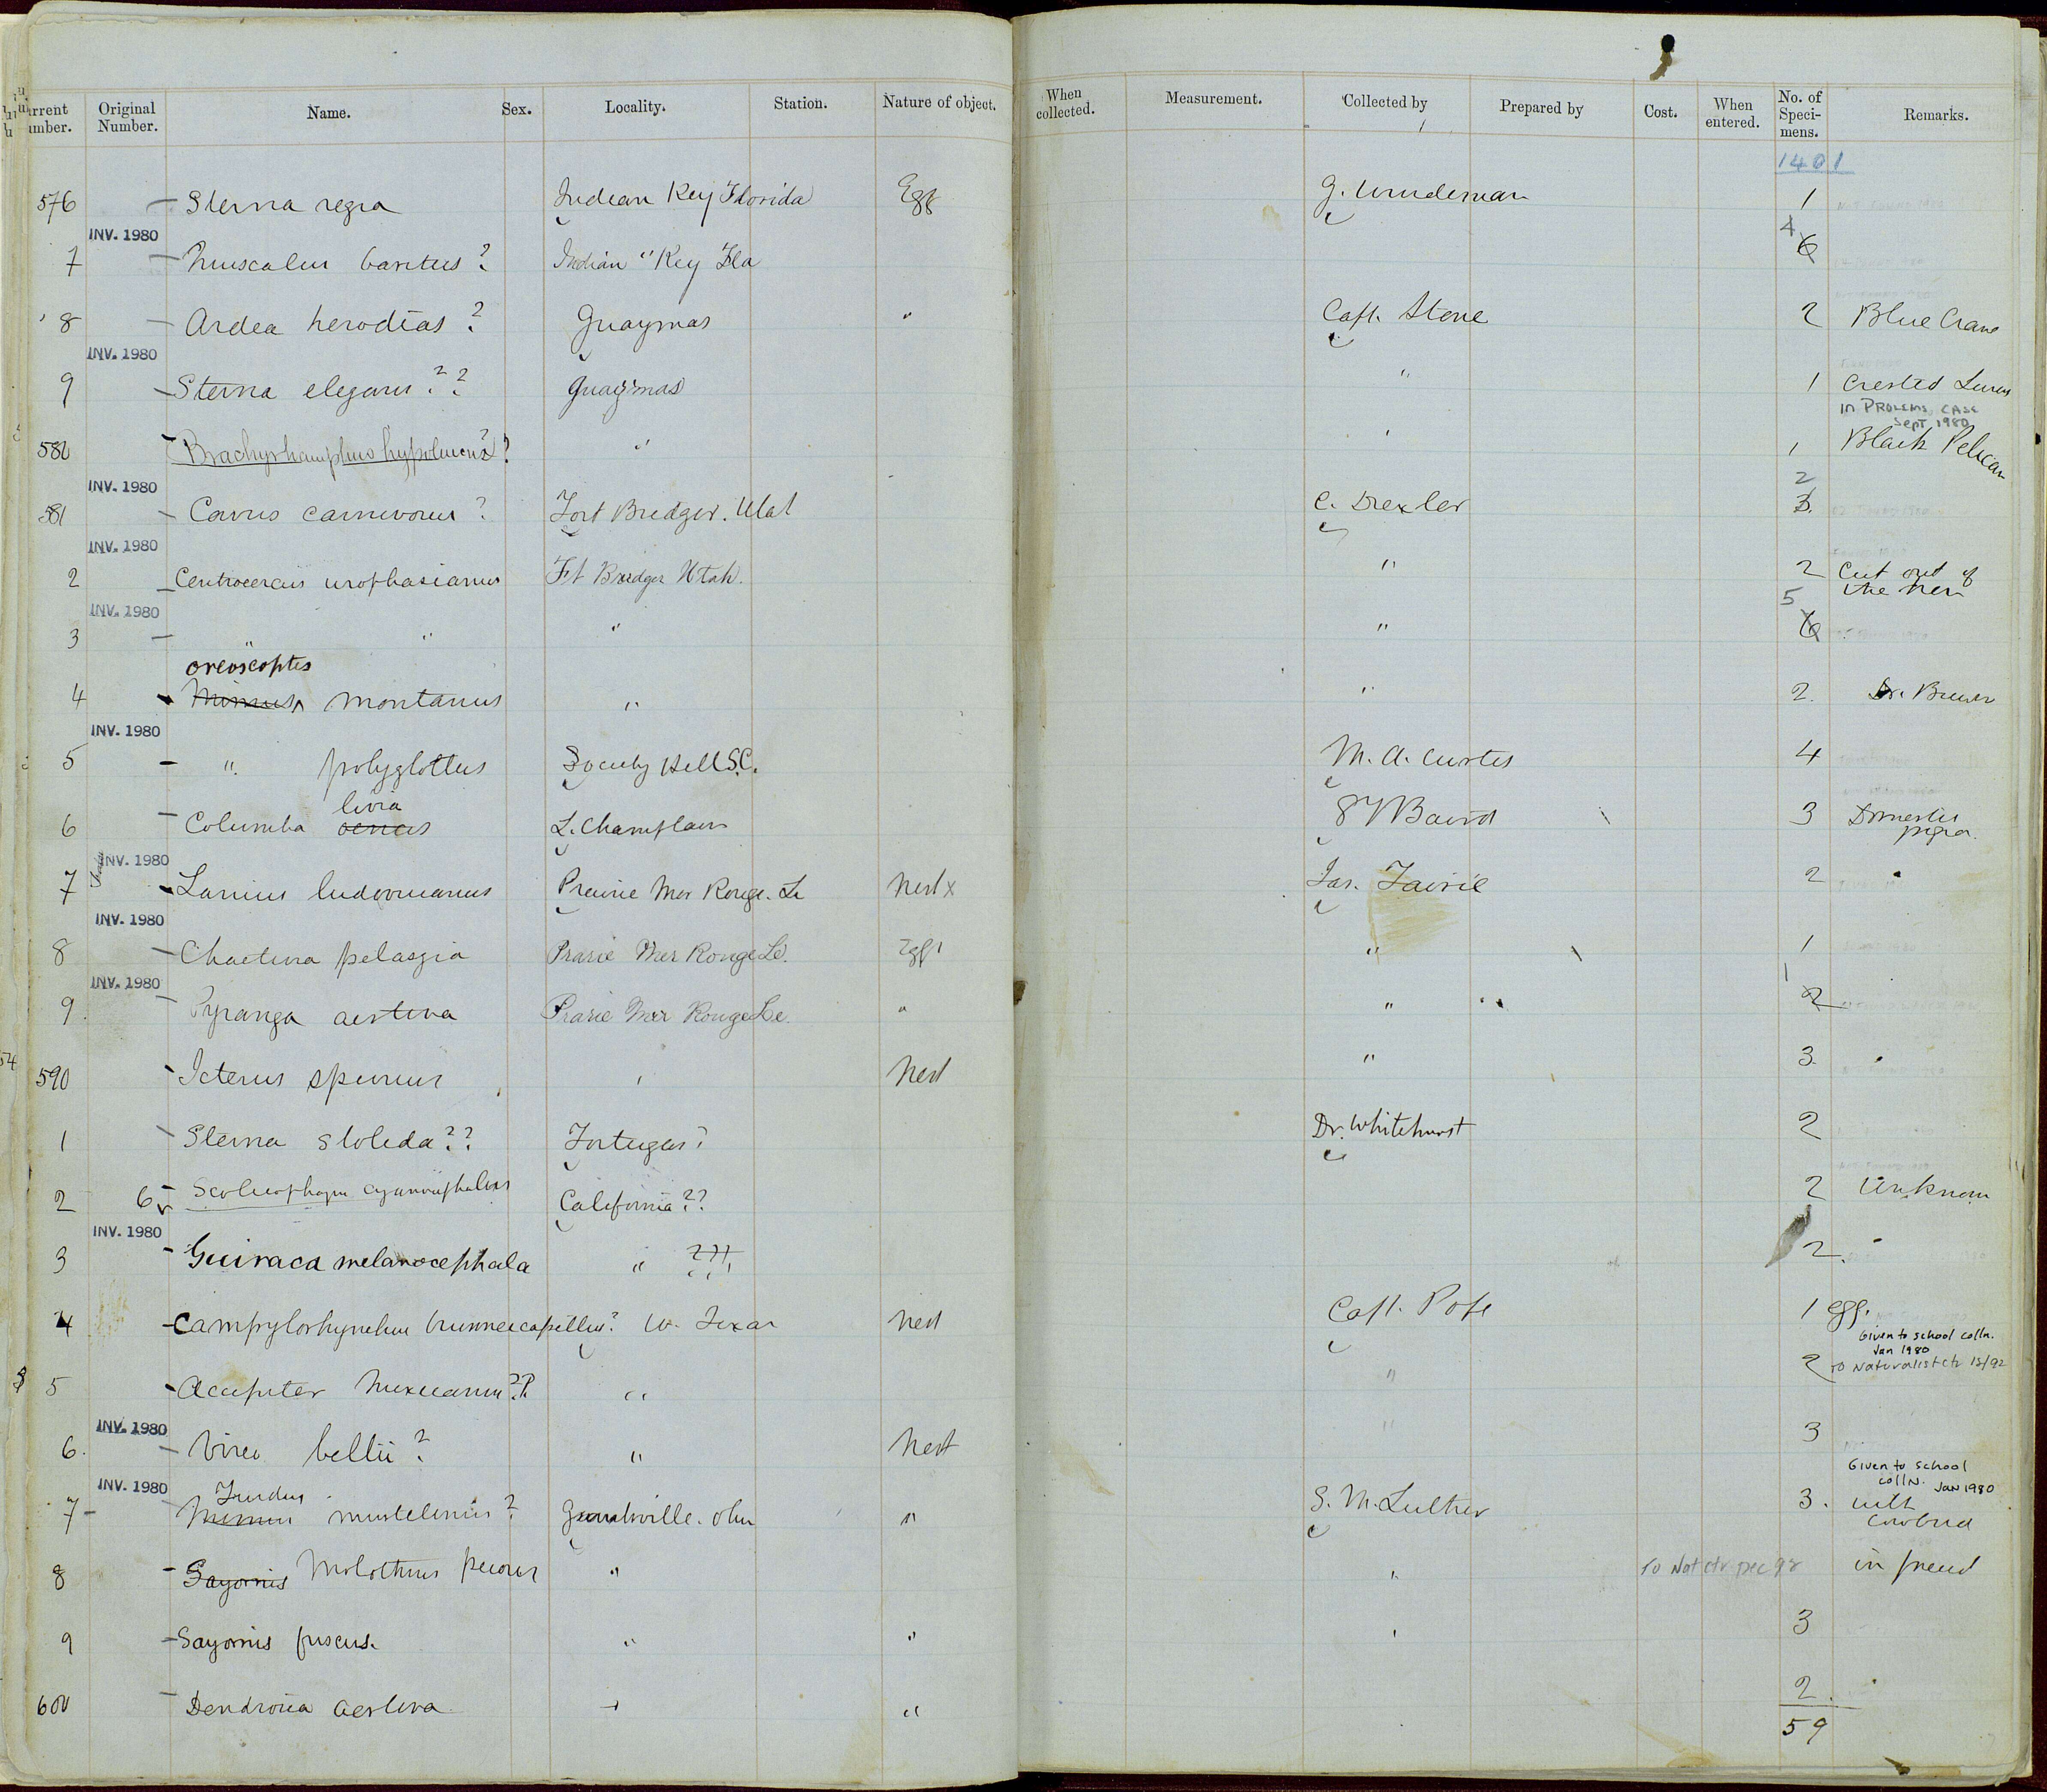 Current Number. Original Number. Name. Sex. Locality. Station. Nature of object. When collected. Measurement. Collected by Prepared by Cost. When entered. No. of Specimens. Remarks.
1401
576 Sterna regia Indian Key Florida Egg G. Wurdeman 1
INV. 1980
7 Quiscalus baritus? Indian " Key Fla 4 6
8 Ardea herodias? Guaymas " Capt. Stone 2 Blue Crane
INV. 1980
9 Sterna elegans?? Guaymas " 1 Crested
in Problems case Sept 1980
580 Brachyrhamphus hypoleucus?? " " 1 Black Pelican
INV. 1980
581 Corvus carnivorus? Fort Bridger. Utah C. Drexler 2 3
INV. 1980
2 Centrocercus urophasianus Ft Bridger Utah. " 2 Cut out of the hen
INV. 1980
3 " " " 5 6
oreoscoptes
4 Mimus montanus " " 2 Dr. Brewer
INV. 1980
5 " polyglottus Society Hill S.C. M. A. Curtis 4
livia
6 Columba L. Champlain S F Baird 3 Domestic pigeon
INV. 1980
7 Lanius ludovicianus Prairie Mer Rouge. La Nest x Jas. Fairie 2 "
INV. 1980
8 Chaetura pelasgia Prarie Mer Rouge La. Egg " 1
INV. 1980
9 Pyranga aestiva Prarie Mer Rouge La. " " 1 2
590 Icterus spurius " Nest " 3
1 Sterna stolida?? Tortugas? Dr. Whitehurst 2
2 6 Scolecophagus cyanocephalus California?? 2 Unknown
INV. 1980
3 Guiraca melanocephala " ??? 2 "
4 Campylorhynchus brunneicapillus? W. Texas Nest Capt. Pope 1 egg.
Given to school colln. Jan 1980
To Naturalist ctr 12/92
5 Accipiter Mexicanus?? " " 2
INV. 1980
6 Vireo bellii? " Nest " 3
INV. 1980
Given to school colln. Jan 1980
Turdus
7 Mimus mustelinus? Granville. Ohio " S. M. Luther 3. with Cowbird
8 Sayornis Molothrus pecoris " " To Nat ctr Dec 92 in preced
9 Sayornis fuscus. " " " 3
600 Dendroica aestiva " " 2
59